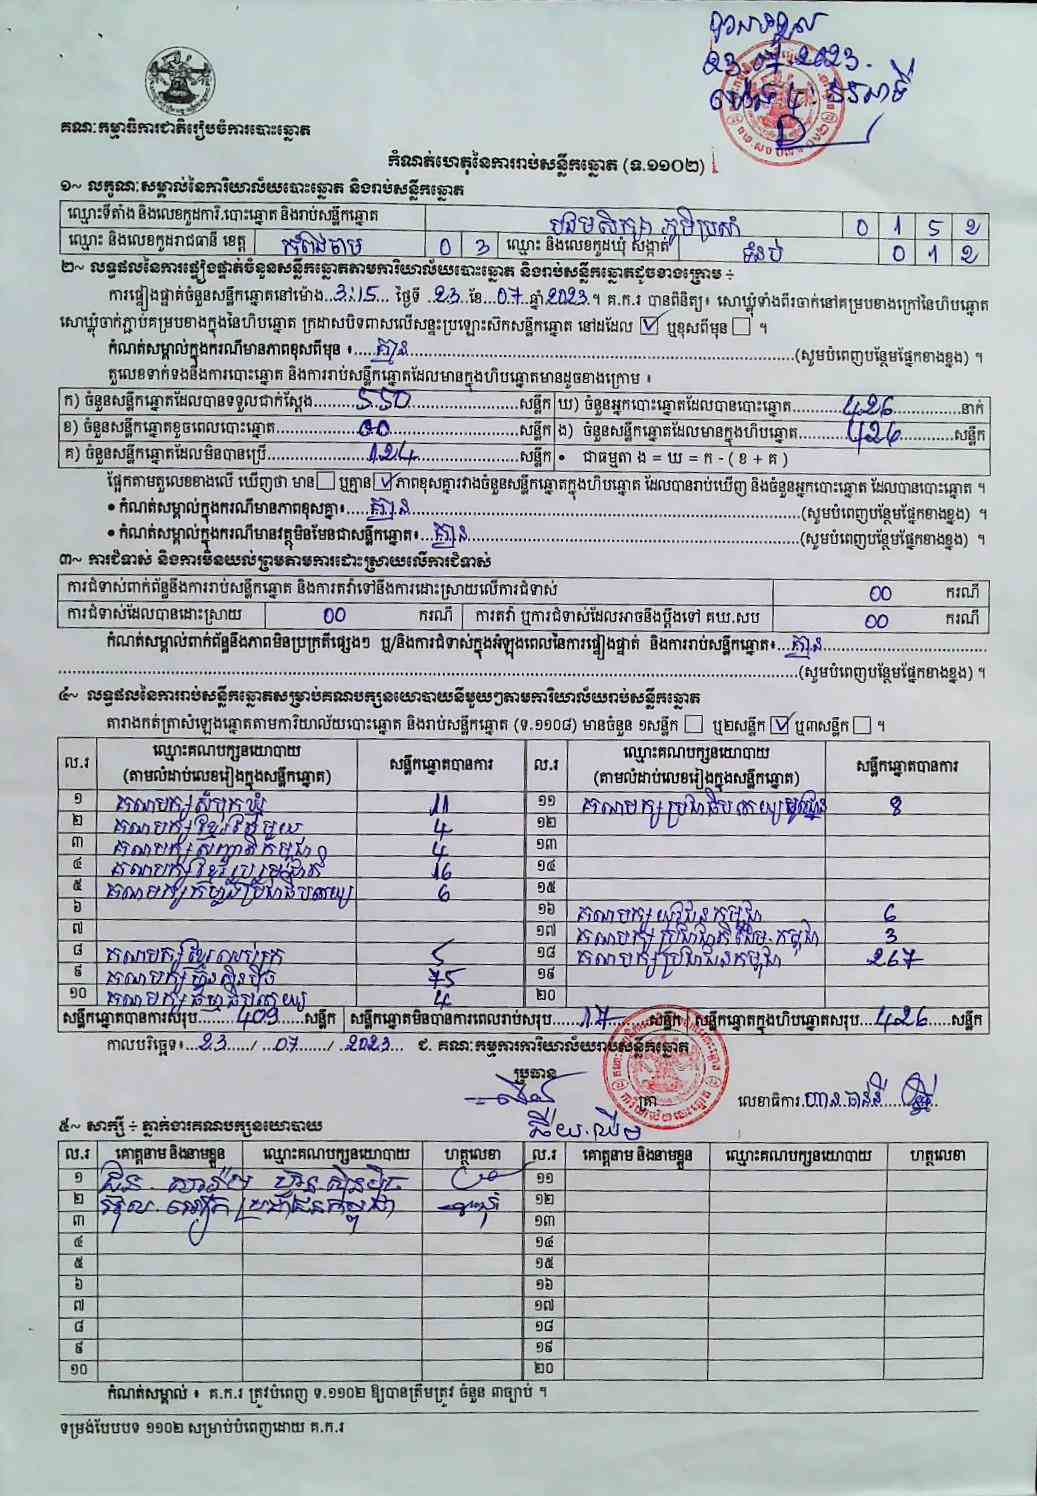 បានទទួល
23.07.2023.
គណៈកម្មាធិការជាតិរៀបចំការបោះឆ្នោត
កំណត់ហេតុនៃការរាប់សន្លឹកឆ្នោត (ទ.១១០២)
១~ លក្ខណៈសម្គាល់នៃការិយាល័យបោះឆ្នោត និងរាប់សន្លឹកឆ្នោត
ឈ្មោះទីតាំង និងលេខកូដការិ.បោះឆ្នោត និងរាប់សន្លឹកឆ្នោត 0 1 5 2
ឈ្មោះ និងលេខកូដរាជធានី ខេត្ត កំពង់ចាម 0 3 ឈ្មោះ និងលេខកូដឃុំ សង្កាត់ ទំនប់ 0 1 2
២~ លទ្ធផលនៃការផ្ទៀងផ្ទាត់ចំនួនសន្លឹកឆ្នោតតាមការិយាល័យបោះឆ្នោត និងរាប់សន្លឹកឆ្នោតដូចខាងក្រោម ÷
ការផ្ទៀងផ្ទាត់ចំនួនសន្លឹកឆ្នោតនៅម៉ោង 3:15 ថ្ងៃទី 23 ខែ 07 ឆ្នាំ 2023 ។ គ.ក.រ បានពិនិត្យ៖ សោឃ្លុំទាំងពីរចាក់នៅគម្របខាងក្រៅនៃហិបឆ្នោត
សោឃ្លុំចាក់ភ្ជាប់គម្របខាងក្នុងនៃហិបឆ្នោត ក្រដាសបិទពាសលើសន្ទះប្រឡោះស៊កសន្លឹកឆ្នោត នៅដដែល ☑ ឬខុសពីមុន ☐ ។
កំណត់សម្គាល់ក្នុងករណីមានភាពខុសពីមុន ៖ គ្មាន (សូមបំពេញបន្ថែមផ្នែកខាងខ្នង) ។
តួលេខទាក់ទងនឹងការបោះឆ្នោត និងការរាប់សន្លឹកឆ្នោតដែលមានក្នុងហិបឆ្នោតមានដូចខាងក្រោម ៖
ក) ចំនួនសន្លឹកឆ្នោតដែលបានទទួលជាក់ស្តែង 550 សន្លឹក ឃ) ចំនួនអ្នកបោះឆ្នោតដែលបានបោះឆ្នោត 426 នាក់
ខ) ចំនួនសន្លឹកឆ្នោតខូចពេលបោះឆ្នោត 00 សន្លឹក ង) ចំនួនសន្លឹកឆ្នោតដែលមានក្នុងហិបឆ្នោត 426 សន្លឹក
គ) ចំនួនសន្លឹកឆ្នោតដែលមិនបានប្រើ 124 សន្លឹក • ជាធម្មតា ង = ឃ = ក - ( ខ + គ )
ផ្អែកតាមតួលេខខាងលើ ឃើញថា មាន ☐ ឬគ្មាន ☑ ភាពខុសគ្នារវាងចំនួនសន្លឹកឆ្នោតក្នុងហិបឆ្នោត ដែលបានរាប់ឃើញ និងចំនួនអ្នកបោះឆ្នោត ដែលបានបោះឆ្នោត ។
• កំណត់សម្គាល់ក្នុងករណីមានភាពខុសគ្នា៖ គ្មាន (សូមបំពេញបន្ថែមផ្នែកខាងខ្នង) ។
• កំណត់សម្គាល់ក្នុងករណីមានវត្ថុមិនមែនជាសន្លឹកឆ្នោត៖ គ្មាន (សូមបំពេញបន្ថែមផ្នែកខាងខ្នង) ។
៣~ ការជំទាស់ និងការមិនយល់ព្រមតាមការដោះស្រាយលើការជំទាស់
ការជំទាស់ពាក់ព័ន្ធនឹងការរាប់សន្លឹកឆ្នោត និងការតវ៉ាទៅនឹងការដោះស្រាយលើការជំទាស់ 00 ករណី
ការជំទាស់ដែលបានដោះស្រាយ 00 ករណី ការតវ៉ា ឬការជំទាស់ដែលអាចនឹងប្តឹងទៅ គឃ.សប 00 ករណី
កំណត់សម្គាល់ពាក់ព័ន្ធនឹងភាពមិនប្រក្រតីផ្សេងៗ ឬ/និងការជំទាស់ក្នុងអំឡុងពេលនៃការផ្ទៀងផ្ទាត់ និងការរាប់សន្លឹកឆ្នោត៖ គ្មាន
(សូមបំពេញបន្ថែមផ្នែកខាងខ្នង) ។
៤~ លទ្ធផលនៃការរាប់សន្លឹកឆ្នោតសម្រាប់គណបក្សនយោបាយនីមួយៗតាមការិយាល័យរាប់សន្លឹកឆ្នោត
តារាងកត់ត្រាសំឡេងឆ្នោតតាមការិយាល័យបោះឆ្នោត និងរាប់សន្លឹកឆ្នោត (ទ.១១០៨) មានចំនួន ១សន្លឹក ☐ ឬ២សន្លឹក ☑ ឬ៣សន្លឹក ☐ ។
ល.រ ឈ្មោះគណបក្សនយោបាយ (តាមលំដាប់លេខរៀងក្នុងសន្លឹកឆ្នោត) សន្លឹកឆ្នោតបានការ ល.រ ឈ្មោះគណបក្សនយោបាយ (តាមលំដាប់លេខរៀងក្នុងសន្លឹកឆ្នោត) សន្លឹកឆ្នោតបានការ
១ គណបក្សសំបុកឃ្មុំ 11 ១១ គណបក្សប្រជាធិបតេយ្យមូលដ្ឋាន 8
២ គណបក្សខ្មែរតែមួយ 4 ១២
៣ គណបក្សសញ្ជាតិកម្ពុជា 4 ១៣
៤ គណបក្សខ្មែររួបរួមជាតិ 16 ១៤
៥ គណបក្សកម្លាំងប្រជាធិបតេយ្យ 6 ១៥
៦ ១៦ គណបក្សយុវជនកម្ពុជា 6
៧ ១៧ គណបក្សប្រជាជាតិដើម.កម្ពុជា 3
៨ គណបក្សខ្មែរឈប់ក្រ 5 ១៨ គណបក្សប្រជាជនកម្ពុជា 267
៩ គណបក្សហ៊្វុនស៊ិនប៉ិច 75 ១៩
១០ គណបក្សធម្មាធិបតេយ្យ 4 ២០
សន្លឹកឆ្នោតបានការសរុប 409 សន្លឹក សន្លឹកឆ្នោតមិនបានការពេលរាប់សរុប 17 សន្លឹក សន្លឹកឆ្នោតក្នុងហិបឆ្នោតសរុប 426 សន្លឹក
កាលបរិច្ឆេទ៖ 23 / 07 / 2023 ជ. គណៈកម្មការការិយាល័យរាប់សន្លឹកឆ្នោត
ប្រធាន
ត្រា លេខាធិការ
៥~ សាក្សី ÷ ភ្នាក់ងារគណបក្សនយោបាយ
ល.រ គោត្តនាម និងនាមខ្លួន ឈ្មោះគណបក្សនយោបាយ ហត្ថលេខា ល.រ គោត្តនាម និងនាមខ្លួន ឈ្មោះគណបក្សនយោបាយ ហត្ថលេខា
១ ហ៊្វុន.ស៊ិនប៉ិច ១១
២ ប្រជាជនកម្ពុជា ១២
៣ ១៣
៤ ១៤
៥ ១៥
៦ ១៦
៧ ១៧
៨ ១៨
៩ ១៩
១០ ២០
កំណត់សម្គាល់ ៖ គ.ក.រ ត្រូវបំពេញ ទ.១១០២ ឱ្យបានត្រឹមត្រូវ ចំនួន ៣ច្បាប់ ។
ទម្រង់បែបបទ ១១០២ សម្រាប់បំពេញដោយ គ.ក.រ